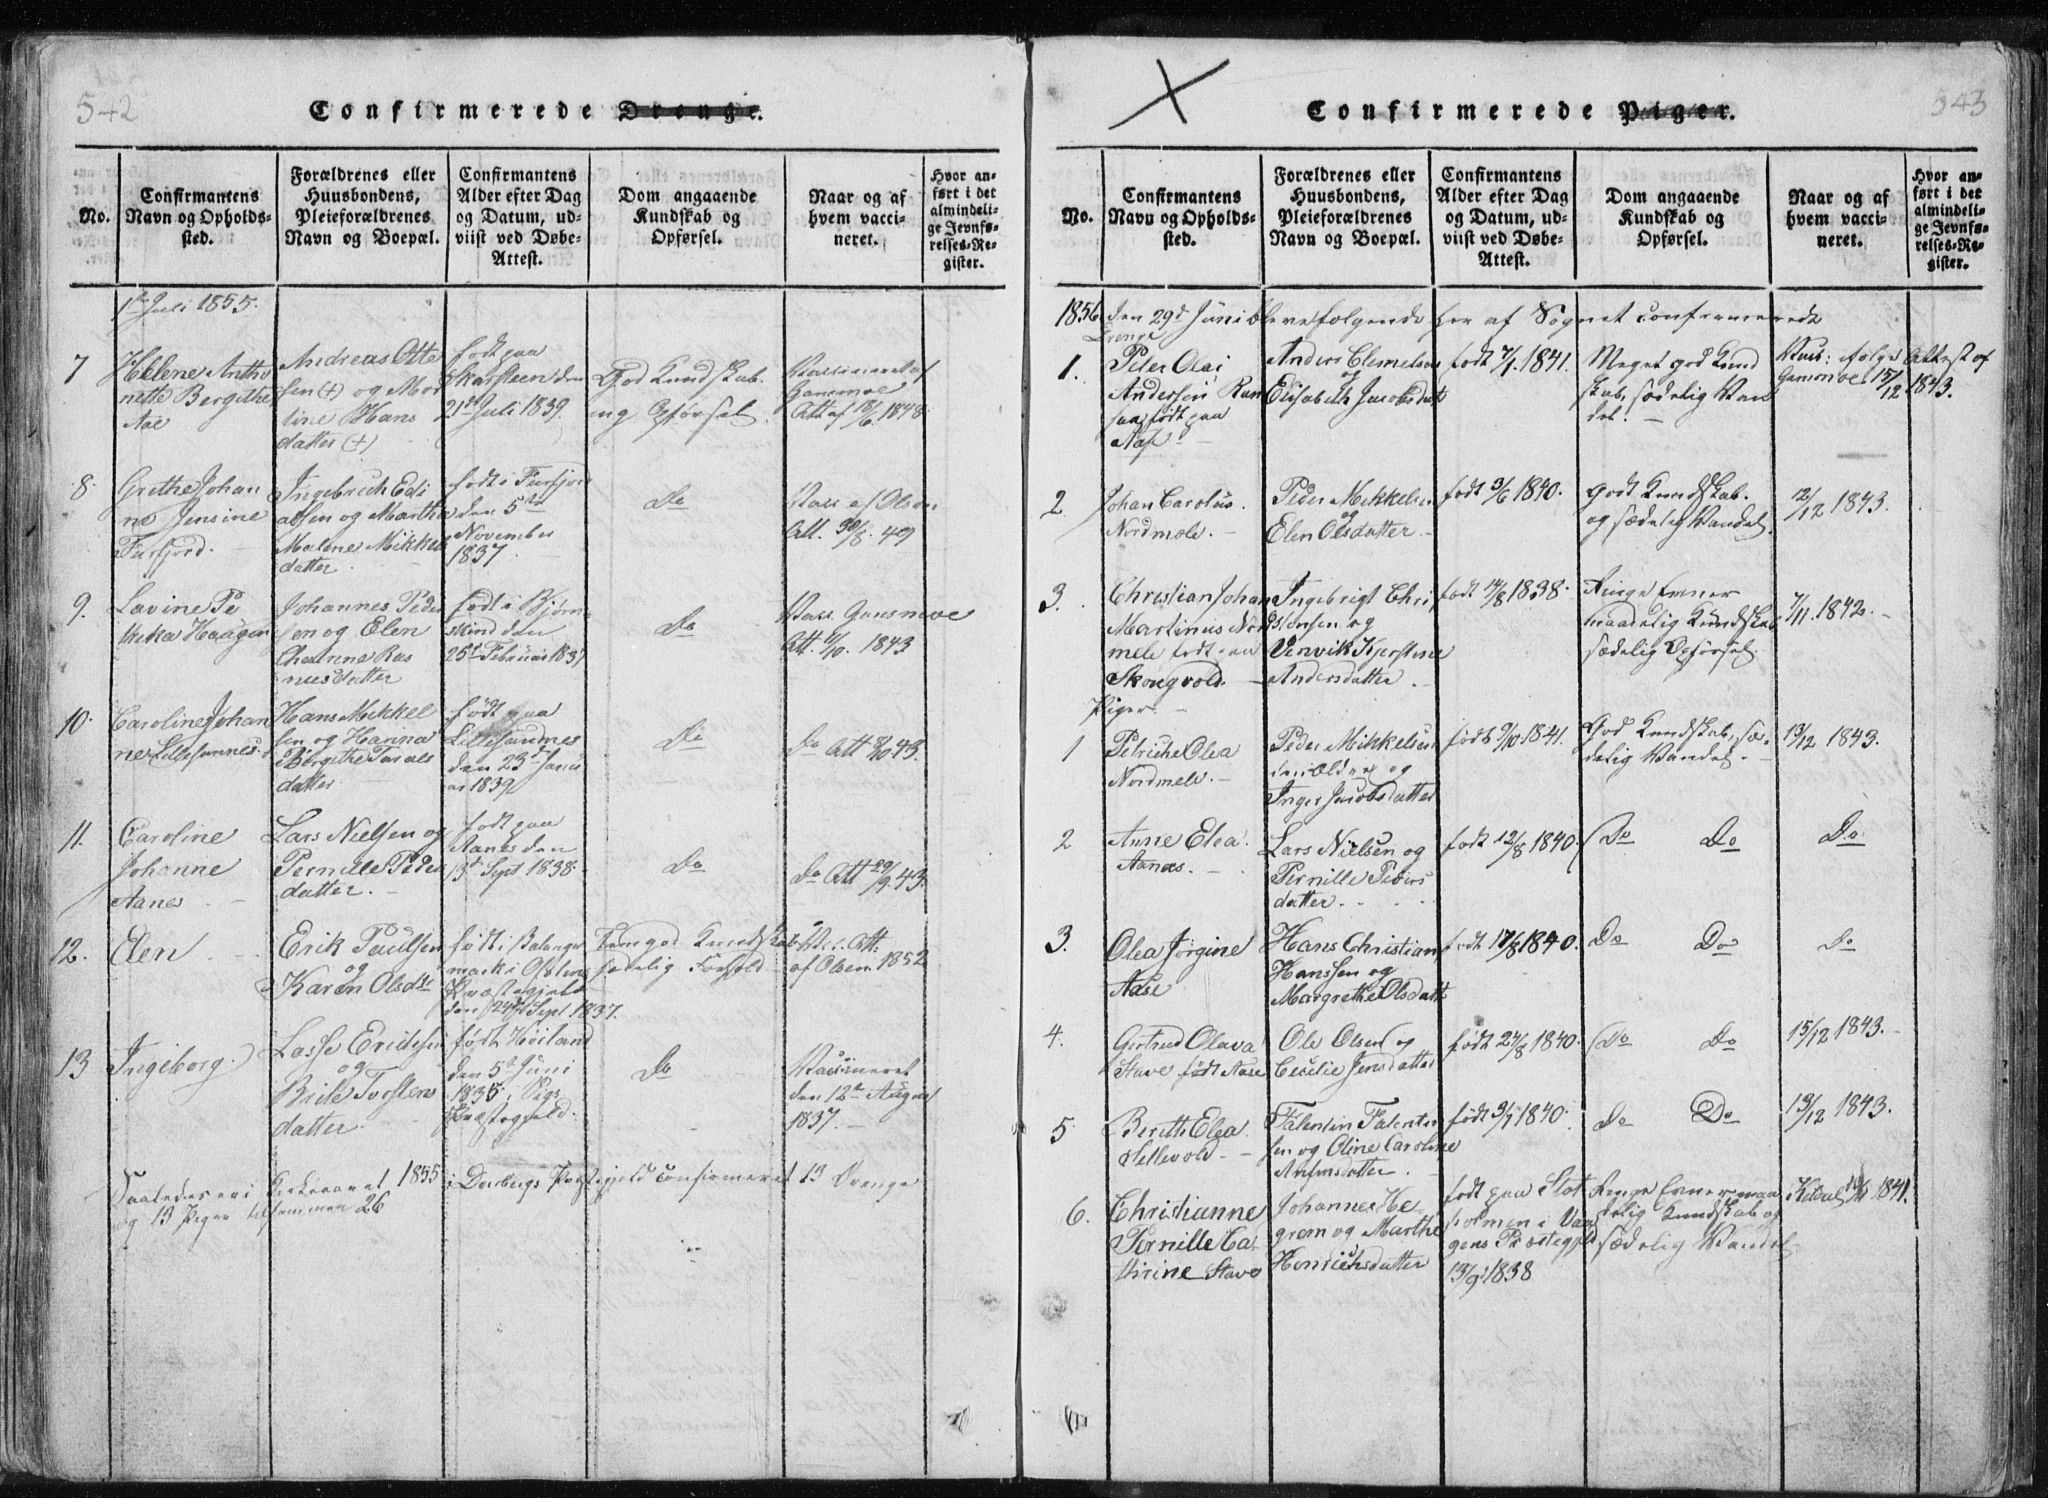 542
Confirmerede Drenge.
No.
Confirmantens
Navn og Opholds-
sted.
Forældrenes eller
Huusbondens,
Pleieforældrenes
Navn og Boepæl.
Confirmantens
Alder efter Dag
og Datum, ud-
viist ved Døbe-
Attest.
Dom angaaende
Kundskab og
Opførsel.
Naar og af
hvem vacci-
neret.
Hvor an-
ført i det
almindeli-
ge Jevnfø-
relses-Re-
gister.
Juli 1855.
7
Helene Antho
nette Bergithe
Aae
Andreas Otte
sen (+) og Mor
line Hans
datter (+)
født paa
Skarsteen den
21de Juli 1839
God Kundskab.
og Opførsel.
Vaccineret af
Gansmoe
Att af 18/6. 1848
8.
Grethe Johan
ne Jensine
Furfjord.
Ingebrickt Edi
assen og Martha
Malene Mikkels
datter
født i Furfjord
den 5te
November
1837
Do
Vacc af Olsen
Att. 30/8. 49
9.
Lavine Pe
Haagen
Johannes Peder
sen og Elen
Ras
musdatter
født i Bjørn
skind den
25de Februar 1837
Do
Vacc. Gansmoe
Att. 1843
10.
Caroline Johan
ne Lillesannes.
Hans Mikkel
sen og Hanna
Bergithe
datter
født paa
Lillesandnes
den 23de Janu
ar 1839
Do
Do Att 43.
11.
Caroline
Johanne
Aanes
Lars Nielsen og
Pernille Peder
datter.
født paa
Aanes den
Sept 1838.
Do
Do Att 29/9.43.
12.
Elen
Erik Paulsen
og
Karen Olsdtr
født i Balanger
mark i Ofoten
Præstegjeld
den 24de Sept 1837.
Temgod Kundskab
sædelig Forhold
Att.
af Olsen 1852
13
Ingeborg.
Lasse Ericksen
og
Brite Torstens
datter
født Høiland
den 5te Juni
1836 i Vigs
Præstegjeld.
Do
Vaccineret
den 12te August
1837.
Saaledes er i Kirkeaaret 1855 i Dverbergs Præstegjeld confirmeret 13 Drenge
og 13 Piger tilsammen 26
543
Confirmerede Piger.
No.
Confirmantens
Navn og Opholds-
sted.
Forældrenes eller
Huusbondens,
Pleieforældrenes
Navn og Boepæl.
Confirmantens
Alder efter Dag
og Datum, ud-
viist ved Døbe-
Attest.
Dom angaaende
Kundskab og
Opførsel.
Naar og af
hvem vacci-
neret.
Hvor an-
ført i det
almindeli-
ge Jevnfø-
relses-Re-
gister.
1856 den 29de Juni bleve følgende her af Sognet confirmerede
Drenge
1.
Peter Olai
Andersen Ram
saa, født paa
Aase
Anders Clemetsen
og
Elisabeth Jacobsdatt
født 7/1. 1841.
Meget god Kund
skab, sædelig Van
del.
Vacc: følge Attest af
Gansmoe 15/12 1843.
2
Johan Carolus.
Nordmele.
Peder Mikkelsen
og
Elen Olsdatter
født 3/6 1840.
godt Kundskab.
og sædelig Vandel
12/12 1843.
3.
Christian Johan
Martinus Nord
mele født paa
Skougvold.
Ingebrigt Chri
stensen og
Venvik Kjerstine
Andersdatter
født 14/8 1838.
Ringe men
maadelig Kundskab
sædelig Opførsel
7/11. 1842.
Piger.
1
Petricke Olea
Nordmele.
Peder Mikkelsen
den Eldre og
Inger Jacobsdatter
født 9/10 1841.
God Kundskab, sæ-
delig Vandel
13/12 1843.
2
Anne Elea.
Aanes.
Lars Nielsen og
Pernille Peders
datter.
født 12/8 1840.
Do Do Do
3.
Olea Jørgine
Aase
Hans Christian
Hanssen og
Margrethe Olsdatt
født 17/8 1840.
Do Do Do
4.
Gertrud Olava
Stave født Aase
Ole Olsen og
Cecilie Jensdatter
født 24/8 1840.
Do Do
15/12 1843.
5
Berith Elea
Sellevold
Falentin Falentin
sen og Oline Caroline
Antonsdatter
født 3/1 1840.
Do Do
13/12 1843.
6.
Christianne
Pernille Ca
thrine Stave
Johannes He
grem og Marthe
Henrichsdatter
født paa Slot
holmen i Vaa
gens Præstegjeld
13/9 1838
Ringe men maa
delig Kundskab og
sædelig Vandel.
1841.